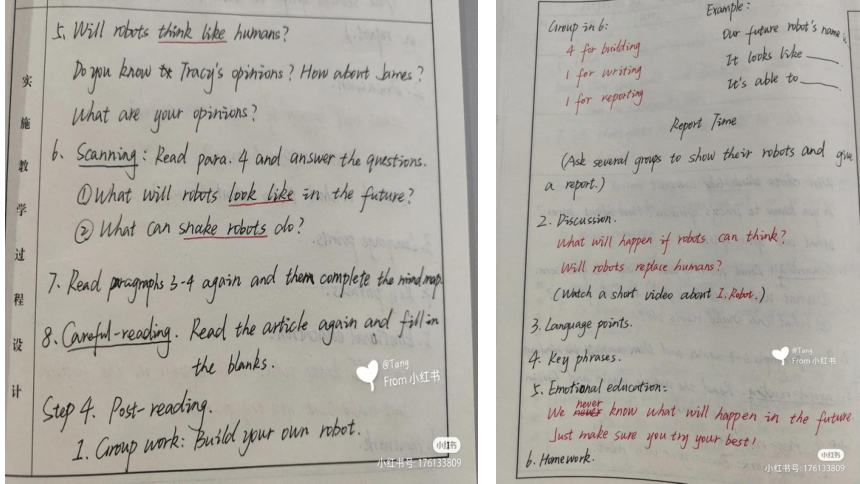 实施教学过程设计
5. Will robots think like humans?
Do you know Tracy's opinions? How about James?
What are your opinions?
6. Scanning: Read para. 4 and answer the questions.
①What will robots look like in the future?
② What can snake robots do?
7. Read paragraphs 3-4 again and them complete the mind map.
8. Careful-reading. Read the article again and fill in
the blanks.
Step 4. Post-reading.
1. Group work: Build your own robot.
@Tang
From 小红书
小红书
小红书号:176133809
Group in 6:
4 for building
1 for writing
1 for reporting
Example:
Our future robot's name is
It looks like ____.
It's able to ____.
Report Time
(Ask several groups to show their robots and give
a report.)
2. Discussion.
What will happen if robots can think?
Will robots replace humans?
(Watch a short video about I, Robot.)
3. Language points.
4. Key phrases.
5. Emotional education:
We never know what will happen in the future.
Just make sure you try your best!
6. Homework.
@Tang
From 小红书
小红书
小红书号:176133809